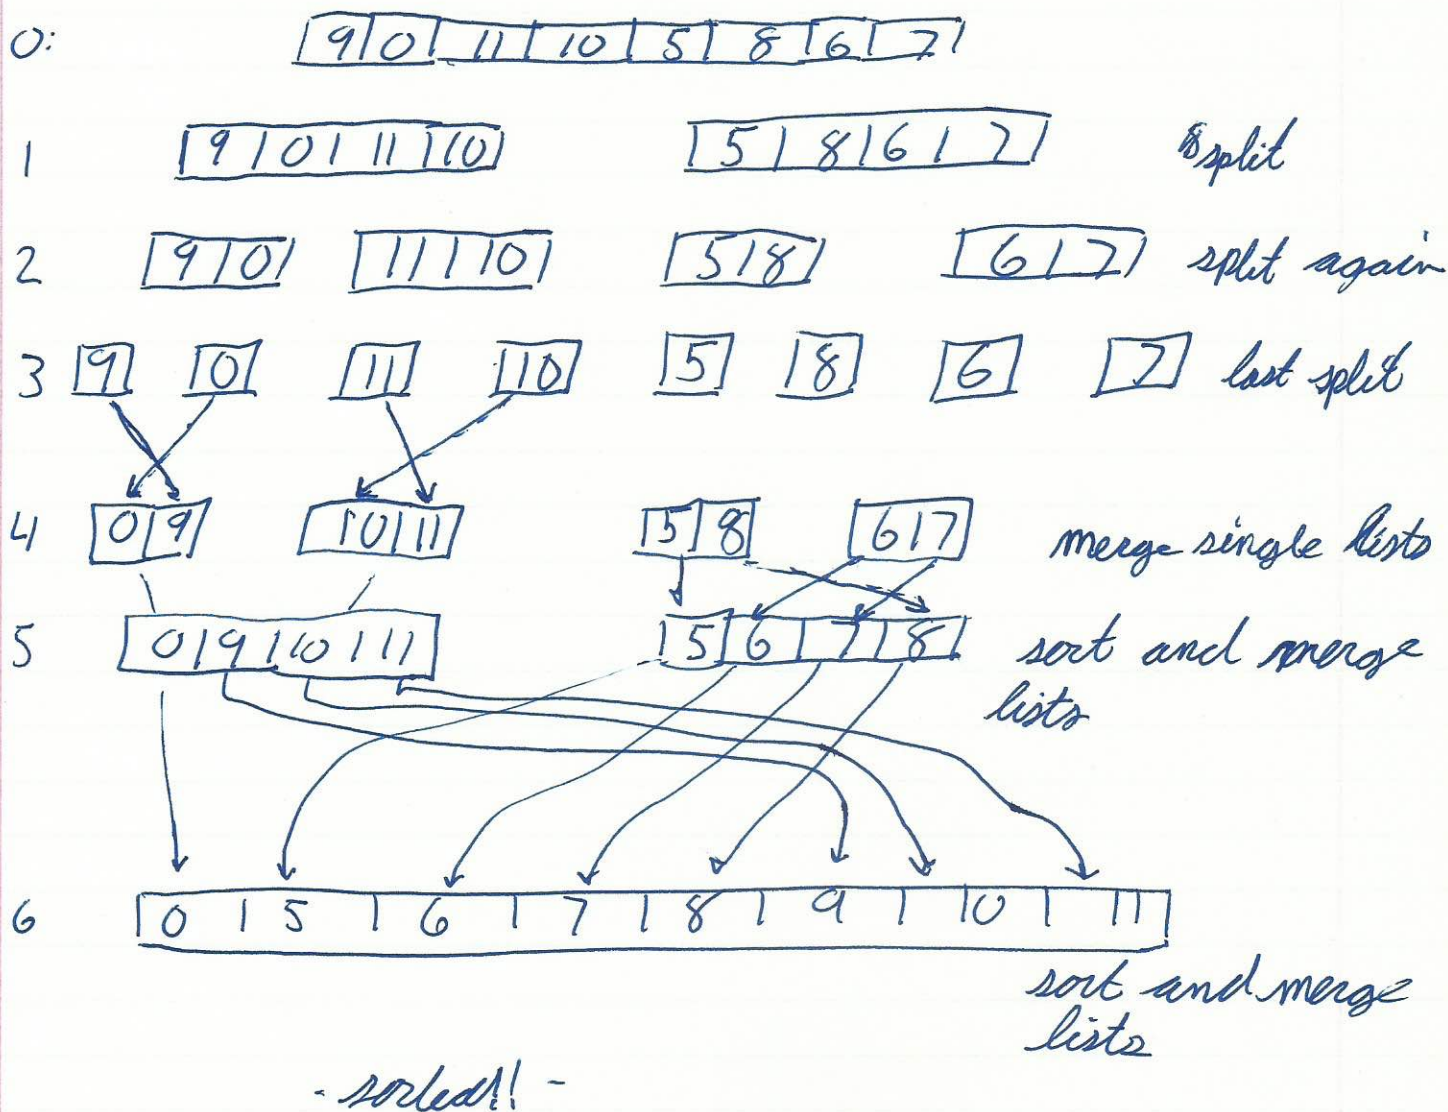 0: 9 0 11 10 5 8 6 7
1 9 0 11 10 5 8 6 7 split
2 9 0 11 10 5 8 6 7 split again
3 9 0 11 10 5 8 6 7 last split
4 0 9 10 11 5 8 6 7 merge single lists
5 0 9 10 11 5 6 7 8 sort and merge
lists
6 0 5 6 7 8 9 10 11
sort and merge
lists
- sorted!! -